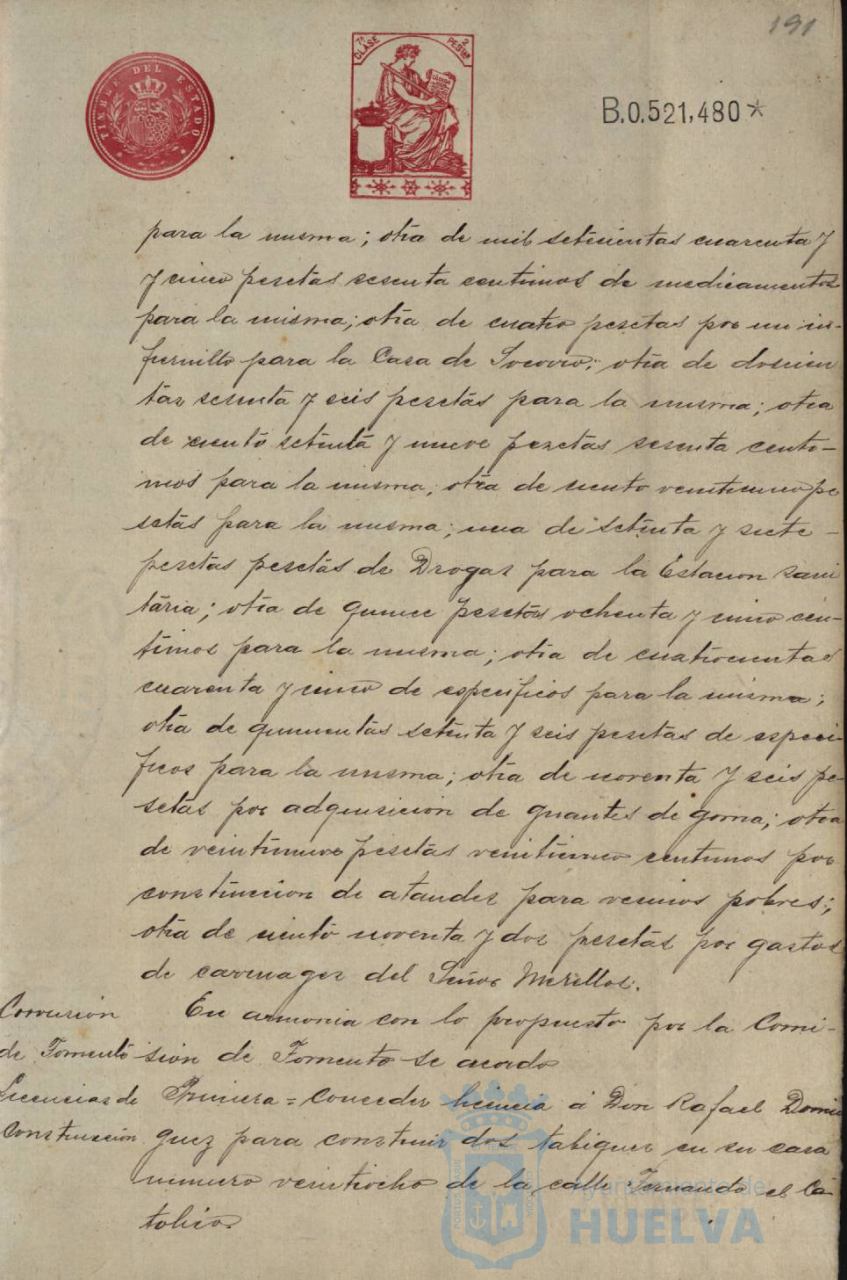 191
TIMBRE DEL ESTADO
7ª CLASE
2 PESTAS
B.0.521,480*
para la misma; otra de mil setecientas cuarenta y
y cinco pesetas sesenta centimos de medicamentos
para la misma; otra de cuatro pesetas por un in-
fiernillo para la Casa de Socorro; otra de doscien
tas sesenta y seis pesetas para la misma; otra
de ciento setenta y nueve pesetas sesenta centi-
mos para la misma; otra de ciento veinticinco pe
setas para la misma; una de setenta y siete-
pesetas pesetas de Drogas para la Estacion sani
taria; otra de quince pesetas ochenta y cinco cen-
timos para la misma; otra de cuatrocientas
cuarenta y cinco de especificos para la misma;
otra de quinientas setenta y seis pesetas de especi-
ficos para la misma; otra de noventa y seis pe-
setas por adquisicion de guantes de goma; otra
de veintinueve pesetas veinticinco centimos por
construccion de ataudes para vecinos pobres;
otra de ciento noventa y dos pesetas por gastos
de carruages del Señor Morillos.
Comision
En armonia con lo propuesto por la Comi-
de Fomento
sion de Fomento se acordo
Licencias de
Primera = Conceder licencia á Don Rafael Domin
Construccion
guez para construir dos tabiques en su casa
numero veintiocho de la calle Fernando el Ca-
tolico.
Ayuntamiento de
HUELVA